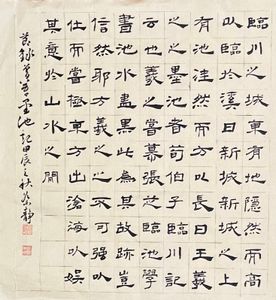 臨川之城東有地隱然而高
以臨於溪曰新城新城之上
有池洼然而方以長曰王羲
之之墨池者荀伯子臨川記
云也羲之嘗慕張芝臨池學
書池水盡黑此為其故跡豈
信然耶方羲之之不可強以
仕而嘗極東方出滄海以娛
其意於山水之間
節錄曾鞏墨池記甲辰之秋靜